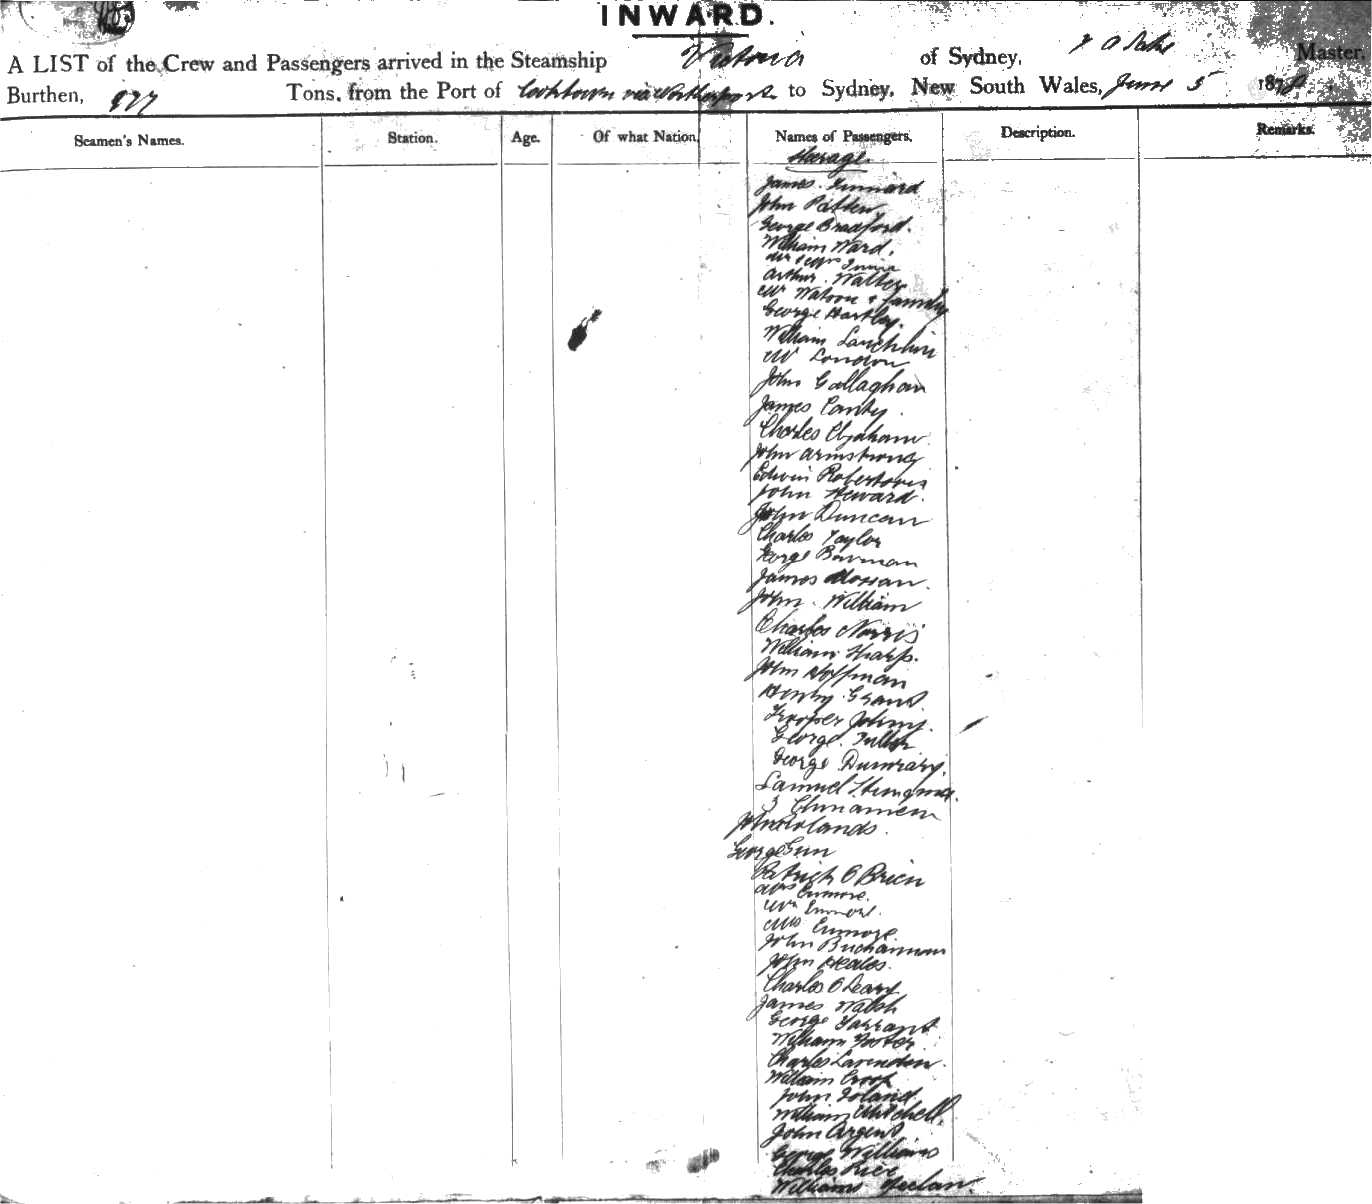 INWARD.
A LIST of the Crew and Passengers arrived in the Steamship Victoria of Sydney, Master,
Burthen, 927 Tons, from the Port of Cooktown via to Sydney, New South Wales, June 5 187
Seamen's Names. Station. Age. Of what Nation. Names of Passengers. Description. Remarks.
Steerage.
James
John Patten
George Bradford.
William Ward.
Mr & Mrs
Arthur Walter
Mr Watson & family
George Hartley.
William Lauchlin
Mr London
John Gallaghan
James Canty
Charles
John Armstrong
Edwin
John Heward.
John Duncan
Charles Taylor
George Bowman
James
John William
Charles Norris
William Sharp.
John Hoffman
Henry Grant.
Trooper Johny.
George
George
Samuel
3 Chinamen
John Rolands.
George Gun
Patrick O Brien
Mrs Enmore.
Mr Enmore.
Miss Enmore
John Buchannan
John Heales.
Charles O Leary
James Walsh
George Tarrant
William Foster
Charles
William Croft
John Toland.
William Mitchell.
John Argent
George Williams
Charles Rice
William